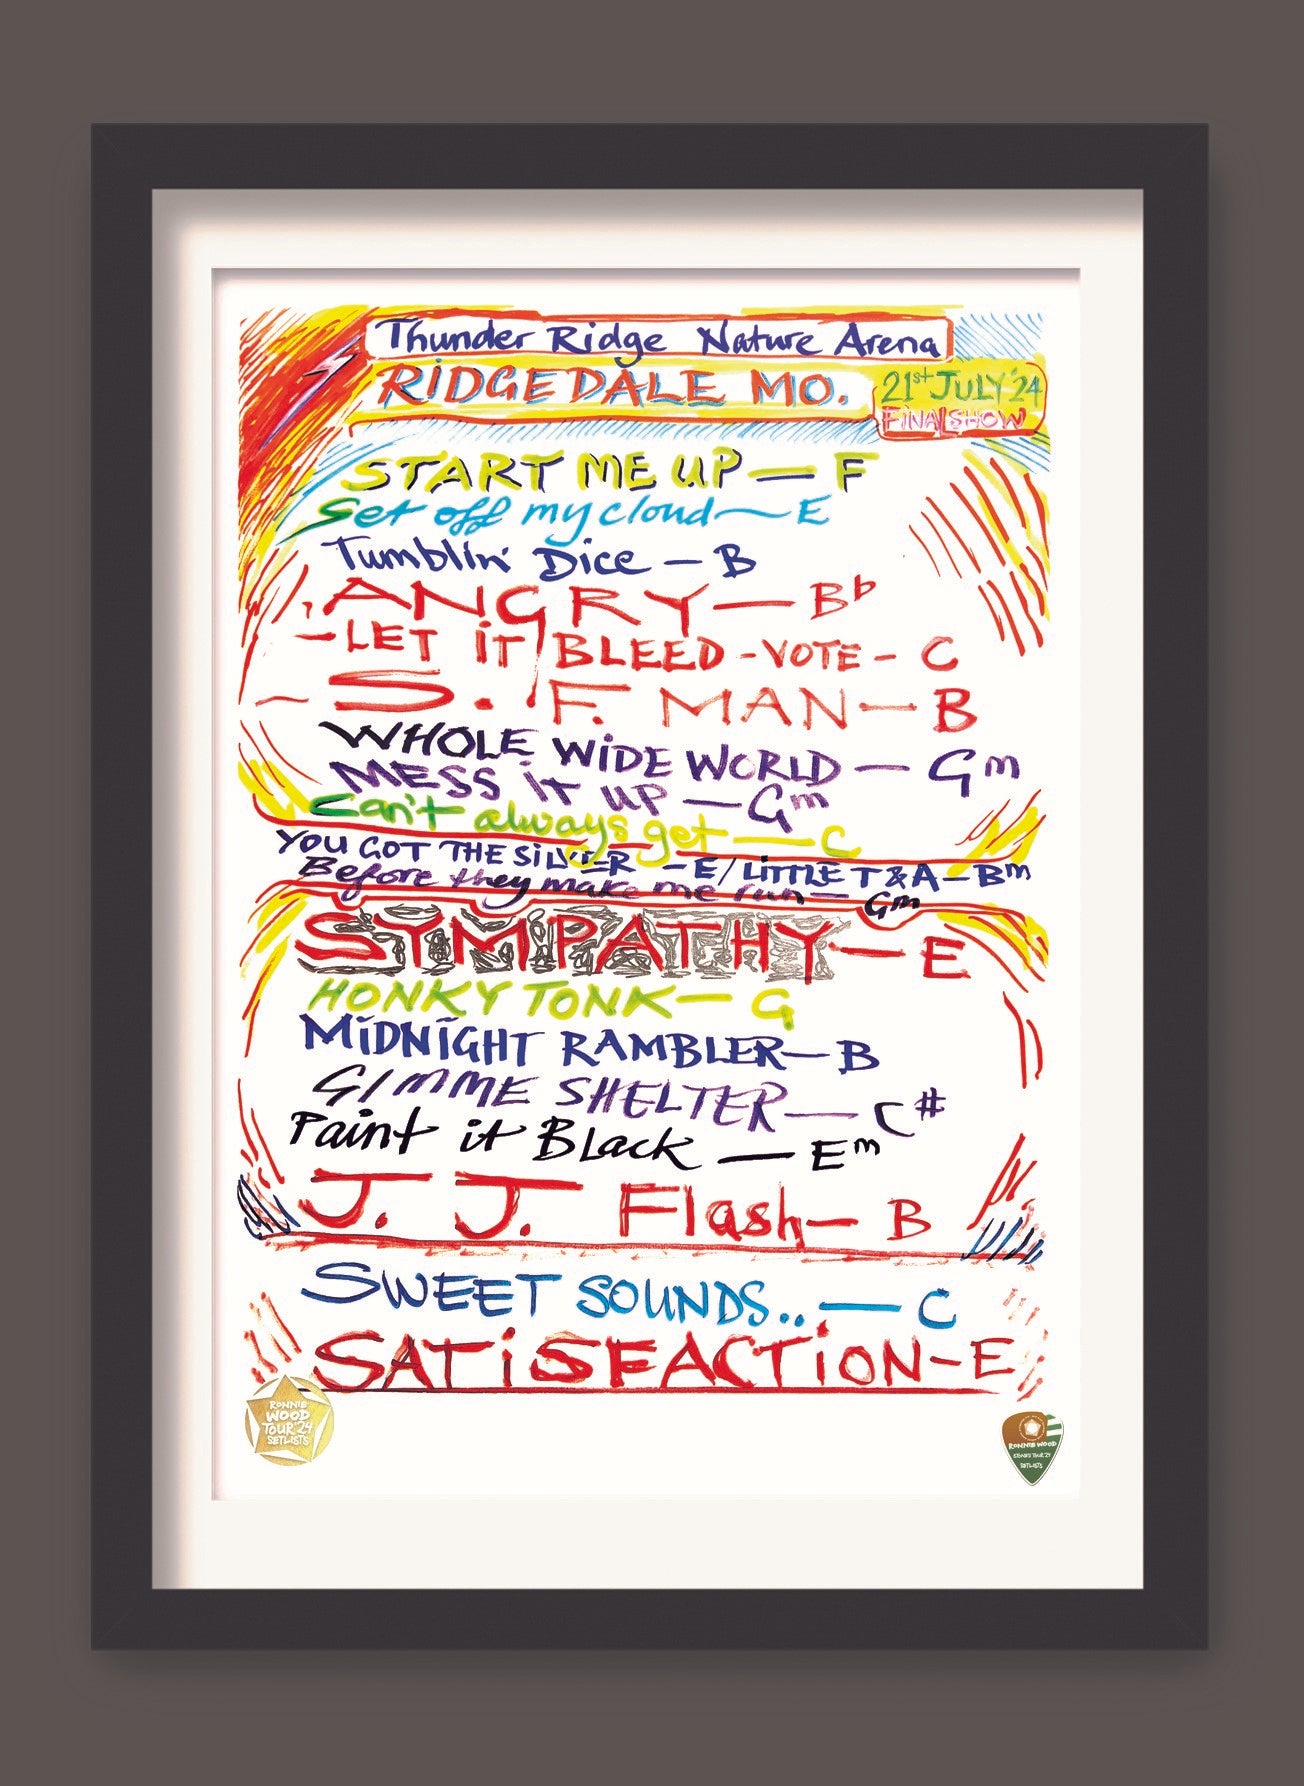 Thunder Ridge Nature Arena
RiDGEDALE MO.
21st JULY '24
FiNAL SHOW
START ME UP — F
Get off my cloud — E
Tumblin' Dice — B
ANGRY — Bb
- LET iT BLEED - VOTE - C
S. F. MAN — B
WHOLE WiDE WORLD — Gm
MESS iT UP — Gm
Can't always get — C
YOU GOT THE SiLVER — E / LiTTLE T & A — Bm
Before they make me run — Gm
SYMPATHY — E
HONKY TONK — G
MiDNiGHT RAMBLER — B
GIMME SHELTER — C#
Paint it Black — Em
J. J. Flash — B
SWEET SOUNDS.. — C
SATiSFACTiON - E
RONNIE
WOOD
TOUR '24
SETLISTS
RONNIE WOOD
STONES TOUR '24
SETLISTS